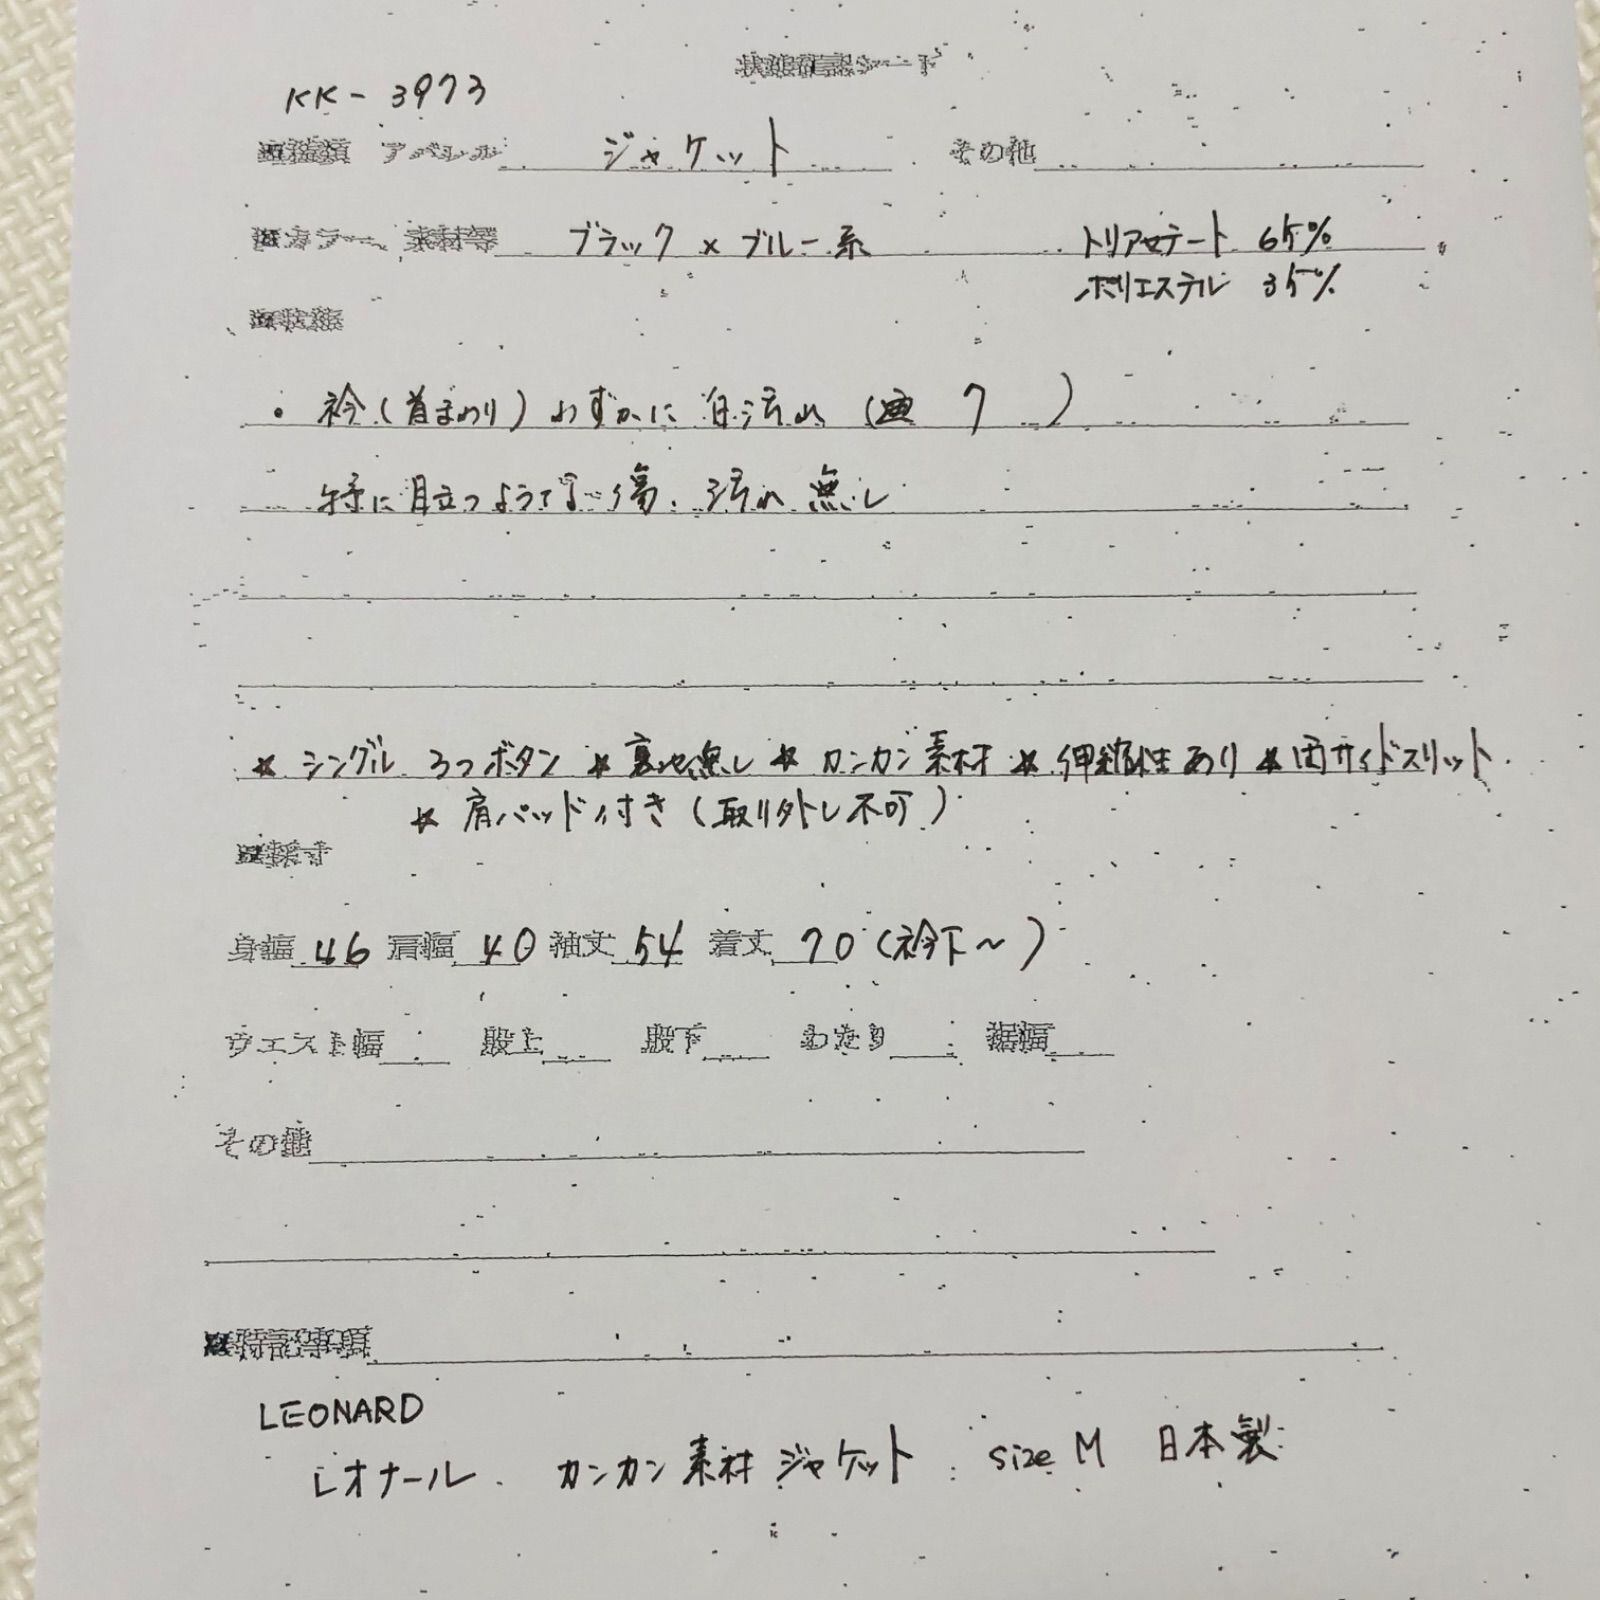 状態確認シート
KK-3973
■種類 アパレル ジャケット その他
■カラー、素材等 ブラック×ブルー系 トリアセテート 65%
ポリエステル 35%
■状態
・衿(首まわり)わずかに白汚れ(画 7 )
特に目立つような傷、汚れ無し
★シングル 3つボタン ★裏地無し ★カンカン素材 ★伸縮性あり ★両サイドスリット
★肩パッド付き(取り外し不可)
■採寸
身幅 46 肩幅 40 袖丈 54 着丈 70(衿下~)
ウエスト幅 股上 股下 わたり 裾幅
その他
■特記事項
LEONARD
レオナール. カンカン素材 ジャケット size M 日本製